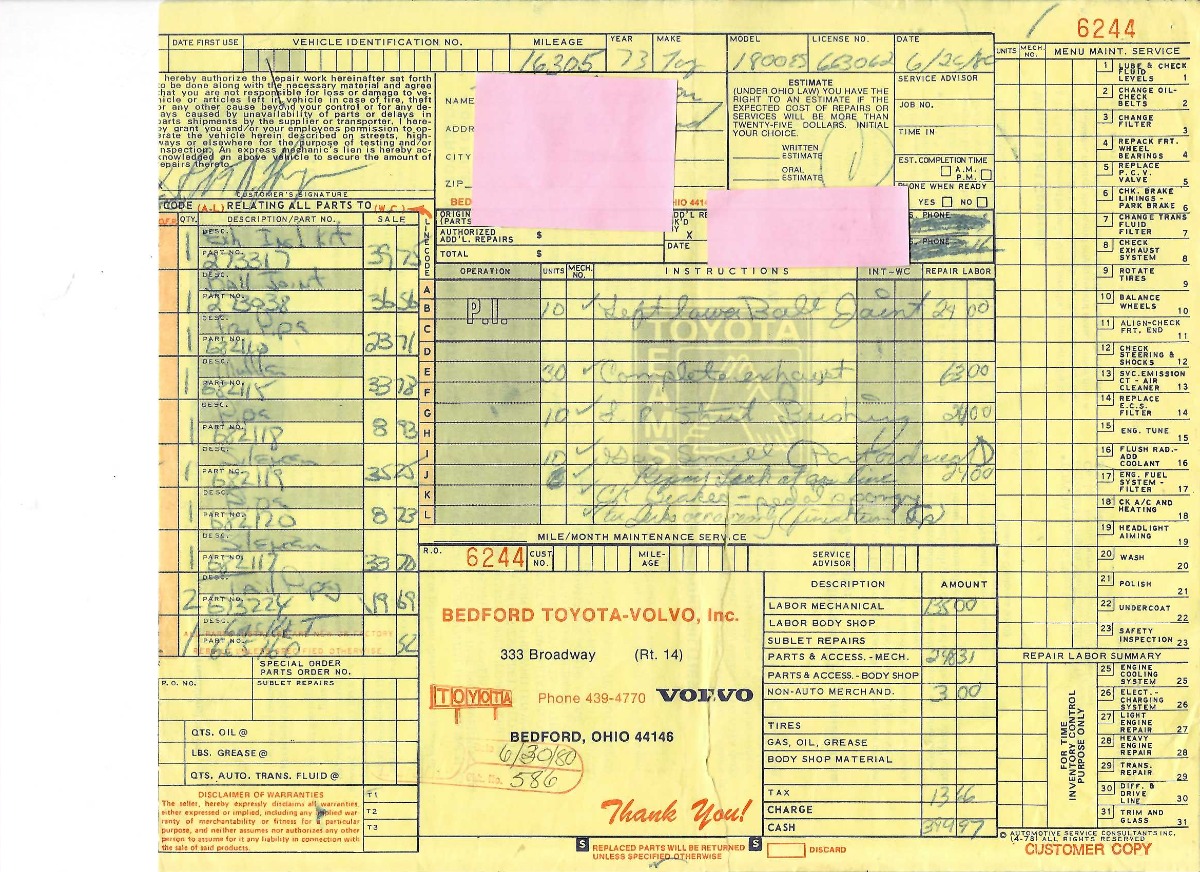 6244
DATE FIRST USE VEHICLE IDENTIFICATION NO. MILEAGE YEAR MAKE MODEL LICENSE NO. DATE
16305 73 Toy 1800ES 663062
hereby authorize the repair work hereinafter set forth
to be done along with the necessary material and agree
that you are not responsible for loss or damage to ve-
hicle or articles left in vehicle in case of fire, theft
or any other cause beyond your control or for any de-
ays caused by unavailability of parts or delays in
parts shipments by the supplier or transporter. I here-
by grant you and/or your employees permission to op-
erate the vehicle herein described on streets, high-
ways or elsewhere for the purpose of testing and/or
nspection. An express mechanic's lien is hereby ac-
knowledged on above vehicle to secure the amount of
epairs thereto.
CUSTOMER'S SIGNATURE
NAME
ADDR
CITY
ZIP
ESTIMATE
(UNDER OHIO LAW) YOU HAVE THE
RIGHT TO AN ESTIMATE IF THE
EXPECTED COST OF REPAIRS OR
SERVICES WILL BE MORE THAN
TWENTY-FIVE DOLLARS. INITIAL
YOUR CHOICE.
WRITTEN
ESTIMATE
ORAL
ESTIMATE
SERVICE ADVISOR
JOB NO.
TIME IN
EST. COMPLETION TIME
A.M.
P.M.
PHONE WHEN READY
YES NO
BED
HIO 441
ORIGIN
(PARTS
AUTHORIZED
ADD'L. REPAIRS $
TOTAL $
DD'L RE
K'D
Y X
DATE
S. PHONE
S. PHONE
CODE (A-L) RELATING ALL PARTS TO (W.C.)
LINE CODE
QTY. DESCRIPTION/PART NO. SALE
DESC.
1 PART NO. 273317 39 75
DESC. Ball Joint
1 PART NO. 273938 36 56
DESC.
1 PART NO. 23 71
DESC. Muffler
1 PART NO. 682115 33 78
DESC. Pipe
1 PART NO. 682118 8 93
DESC.
1 PART NO. 682119 35 25
DESC. Pipe
1 PART NO. 682120 8 23
DESC.
1 PART NO. 682117 33 70
DESC.
2 PART NO. 673224 19 69
DESC. Gasket
1 PART NO. 52
SPECIAL ORDER
PARTS ORDER NO.
P.O. NO. SUBLET REPAIRS
QTS. OIL @
LBS. GREASE @
QTS. AUTO. TRANS. FLUID @
DISCLAIMER OF WARRANTIES
The seller, hereby expressly disclaims all warranties
either expressed or implied, including any implied war-
ranty of merchantability or fitness for a particular
purpose, and neither assumes nor authorizes any other
person to assume for it any liability in connection with
the sale of said products.
T1
T2
T3
OPERATION UNITS MECH. NO. INSTRUCTIONS INT-WC REPAIR LABOR
A
B P.I. 10 Left lower Ball Joint 24 00
C
D
E 30 Complete exhaust 63 00
F
G 10 Strut Bushing 24 00
H
I 10 Gas Smell
J Repair leak at gas line 24 00
K Ck Brakes - pedal spongy
L
TOYOTA
TEAMS
MILE/MONTH MAINTENANCE SERVICE
R.O. 6244 CUST. NO. MILE-AGE SERVICE ADVISOR
BEDFORD TOYOTA-VOLVO, Inc.
333 Broadway (Rt. 14)
TOYOTA Phone 439-4770 VOLVO
BEDFORD, OHIO 44146
6/30/80
586
Thank You!
DESCRIPTION AMOUNT
LABOR MECHANICAL 135 00
LABOR BODY SHOP
SUBLET REPAIRS
PARTS & ACCESS.-MECH. 248 31
PARTS & ACCESS.-BODY SHOP
NON-AUTO MERCHAND. 3 00
TIRES
GAS, OIL, GREASE
BODY SHOP MATERIAL
TAX 13 66
CHARGE
CASH 399 97
S REPLACED PARTS WILL BE RETURNED S DISCARD
UNLESS SPECIFIED OTHERWISE
UNITS MECH. NO. MENU MAINT. SERVICE
1 LUBE & CHECK FLUID LEVELS 1
2 CHANGE OIL-CHECK BELTS 2
3 CHANGE FILTER 3
4 REPACK FRT. WHEEL BEARINGS 4
5 REPLACE P.C.V. VALVE 5
6 CHK. BRAKE LININGS - PARK BRAKE 6
7 CHANGE TRANS FLUID FILTER 7
8 CHECK EXHAUST SYSTEM 8
9 ROTATE TIRES 9
10 BALANCE WHEELS 10
11 ALIGN-CHECK FRT. END 11
12 CHECK STEERING & SHOCKS 12
13 SVC. EMISSION CT - AIR CLEANER 13
14 REPLACE E.C.S. FILTER 14
15 ENG. TUNE 15
16 FLUSH RAD.-ADD COOLANT 16
17 ENG. FUEL SYSTEM - FILTER 17
18 CK A/C AND HEATING 18
19 HEADLIGHT AIMING 19
20 WASH 20
21 POLISH 21
22 UNDERCOAT 22
23 SAFETY INSPECTION 23
REPAIR LABOR SUMMARY
FOR TIME INVENTORY CONTROL PURPOSE ONLY
25 ENGINE COOLING SYSTEM 25
26 ELECT.-CHARGING SYSTEM 26
27 LIGHT ENGINE REPAIR 27
28 HEAVY ENGINE REPAIR 28
29 TRANS. REPAIR 29
30 DIFF. & DRIVE LINE 30
31 TRIM AND GLASS 31
© AUTOMOTIVE SERVICE CONSULTANTS INC.
(4-78) ALL RIGHTS RESERVED
CUSTOMER COPY